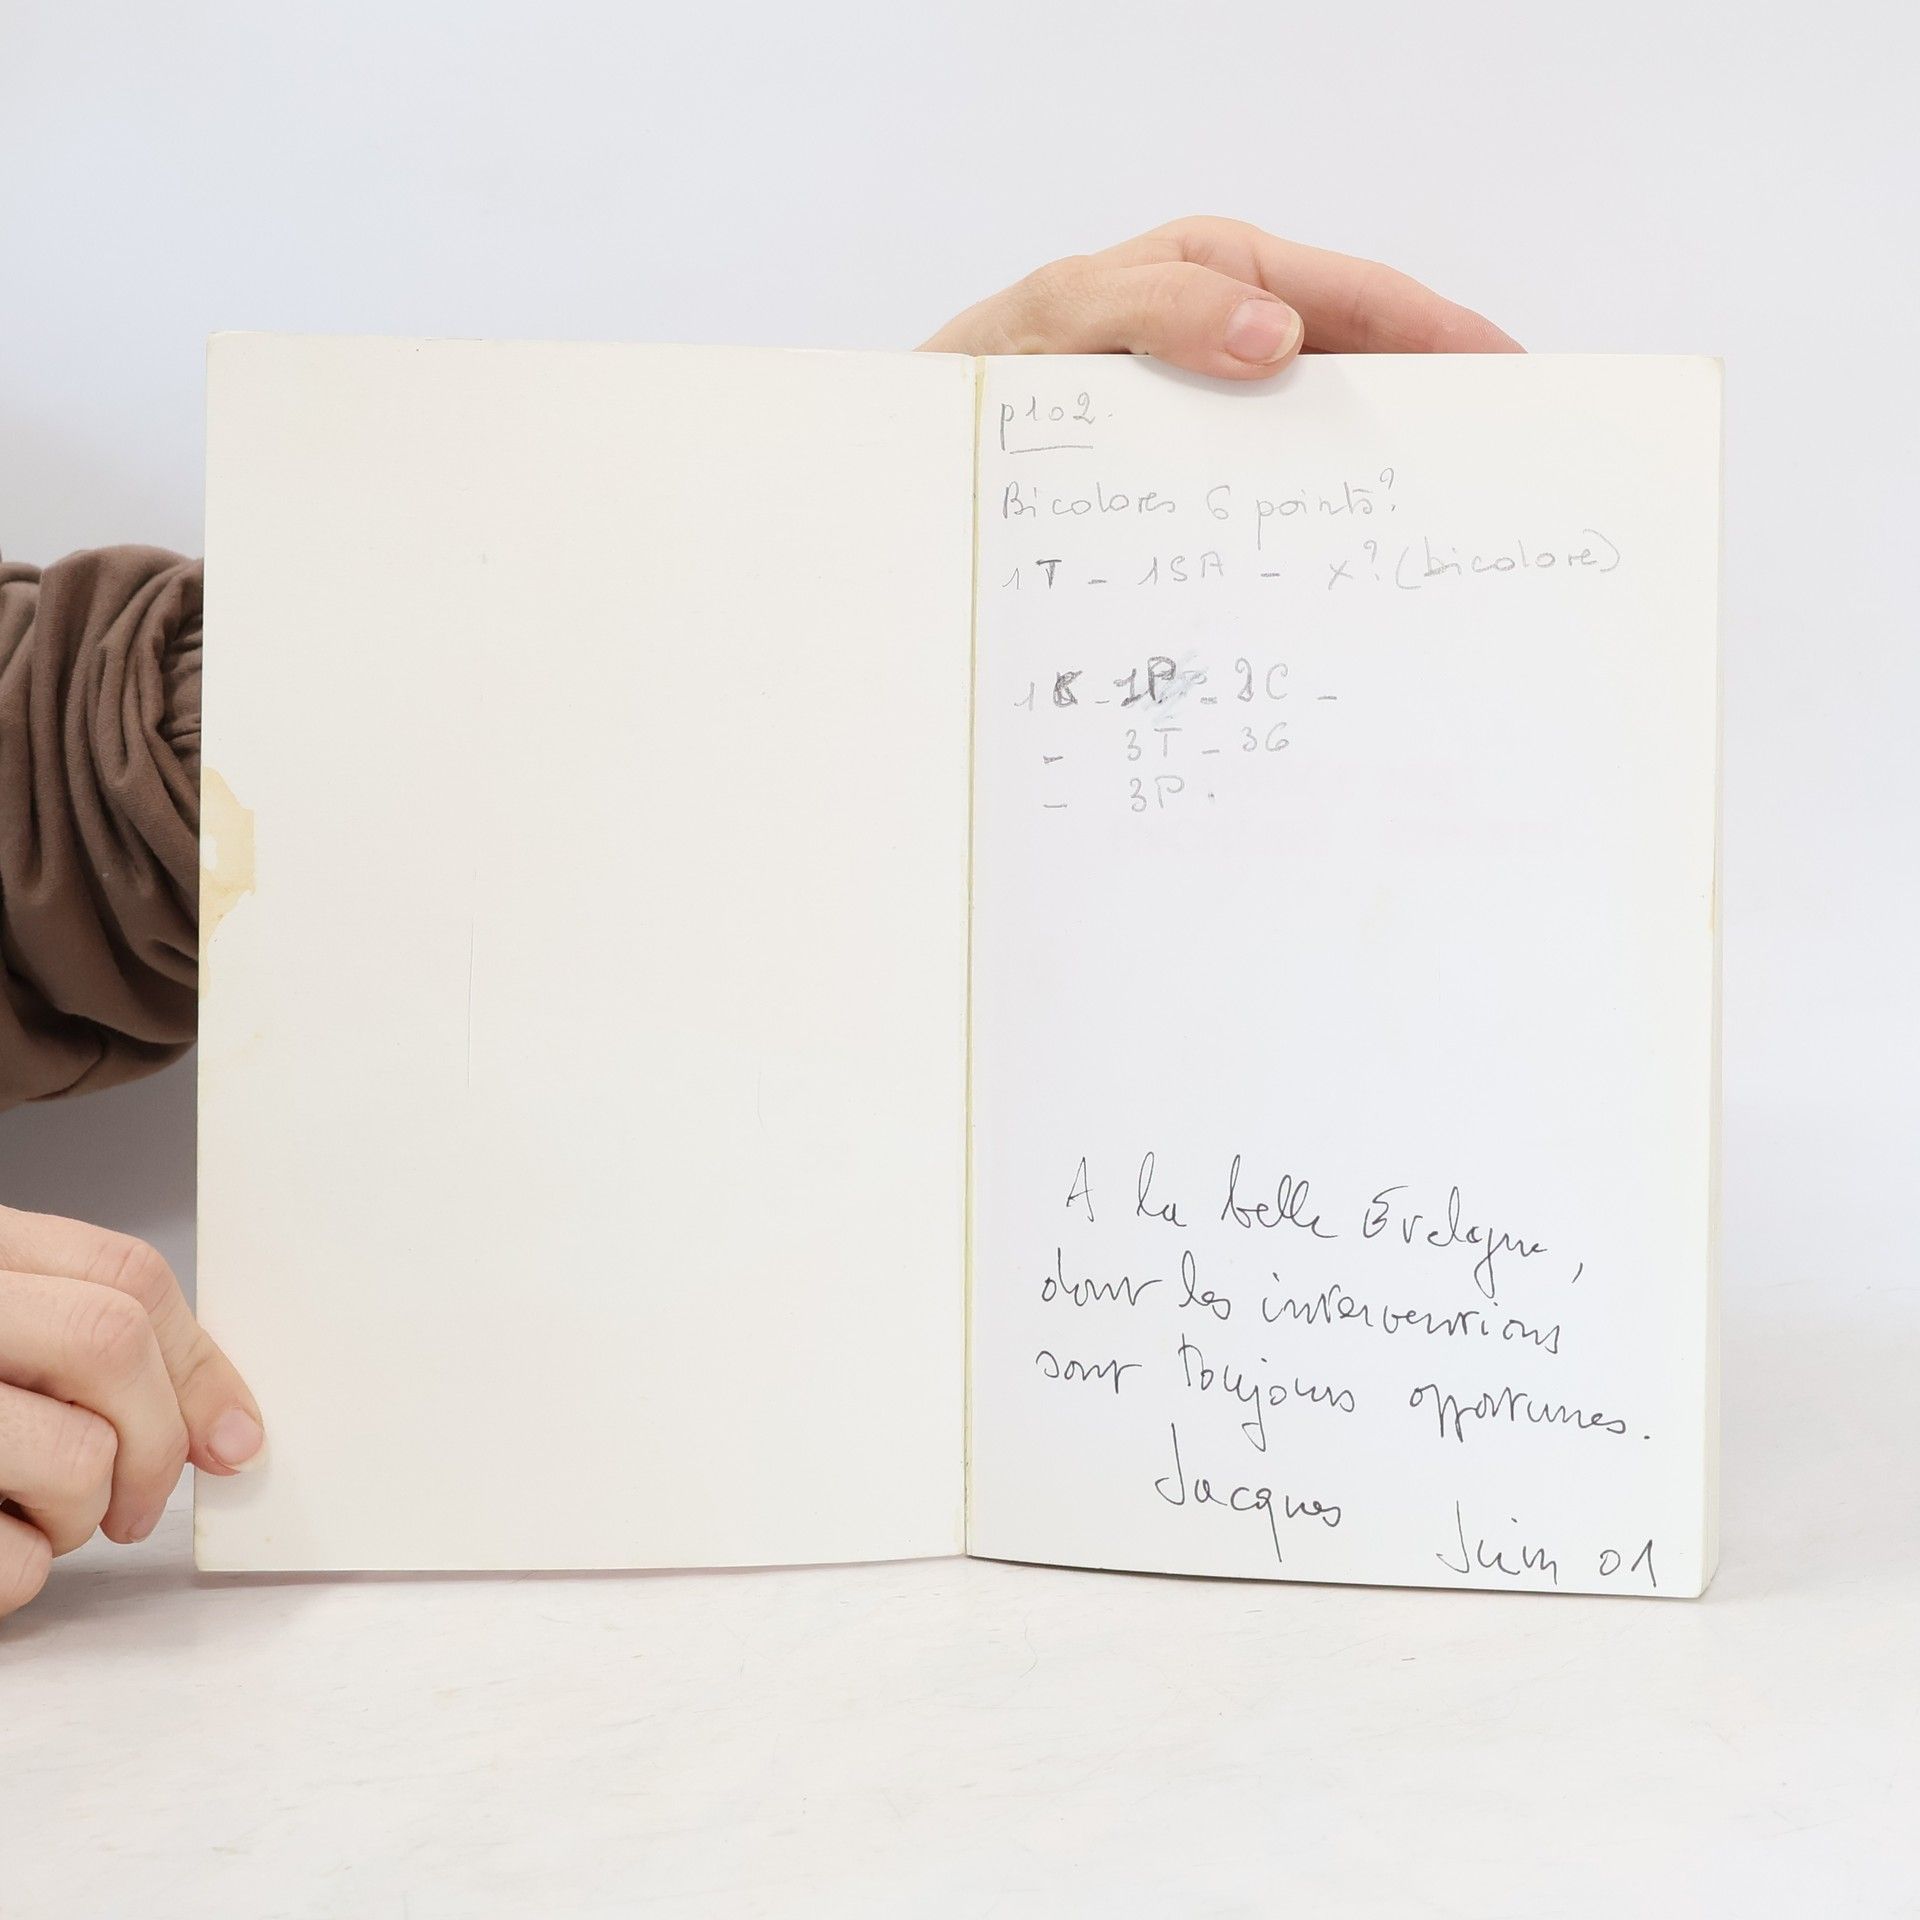 p102.
Bicolores 6 points?
1T - 1SA - x? (bicolore)
1C - 1P - 2C -
- 3T - 3C
- 3P.
A la belle Evelyne,
dont les interventions
sont toujours opportunes.
Jacques
Juin 01